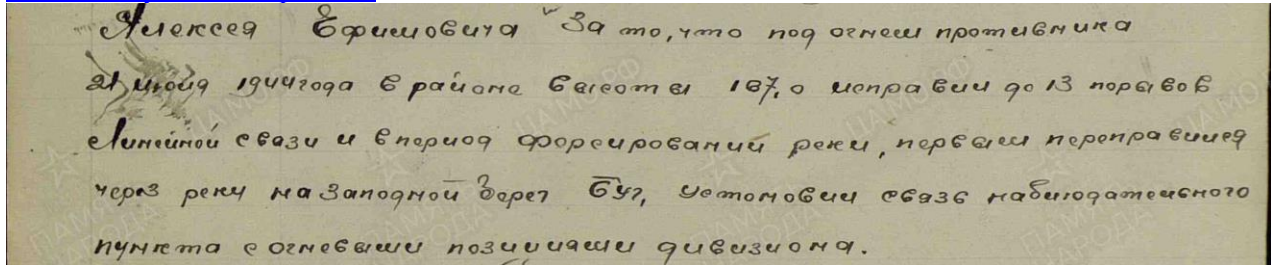 Алексея Ефимовича За то, что под огнем противника
21 июля 1944 года в районе высоты 187,0 исправил до 13 порывов
Линейной связи и в период форсирований реки, первым переправился
через реку на Западной берег Буг, установил связь наблюдательного
пункта с огневыми позициями дивизиона.